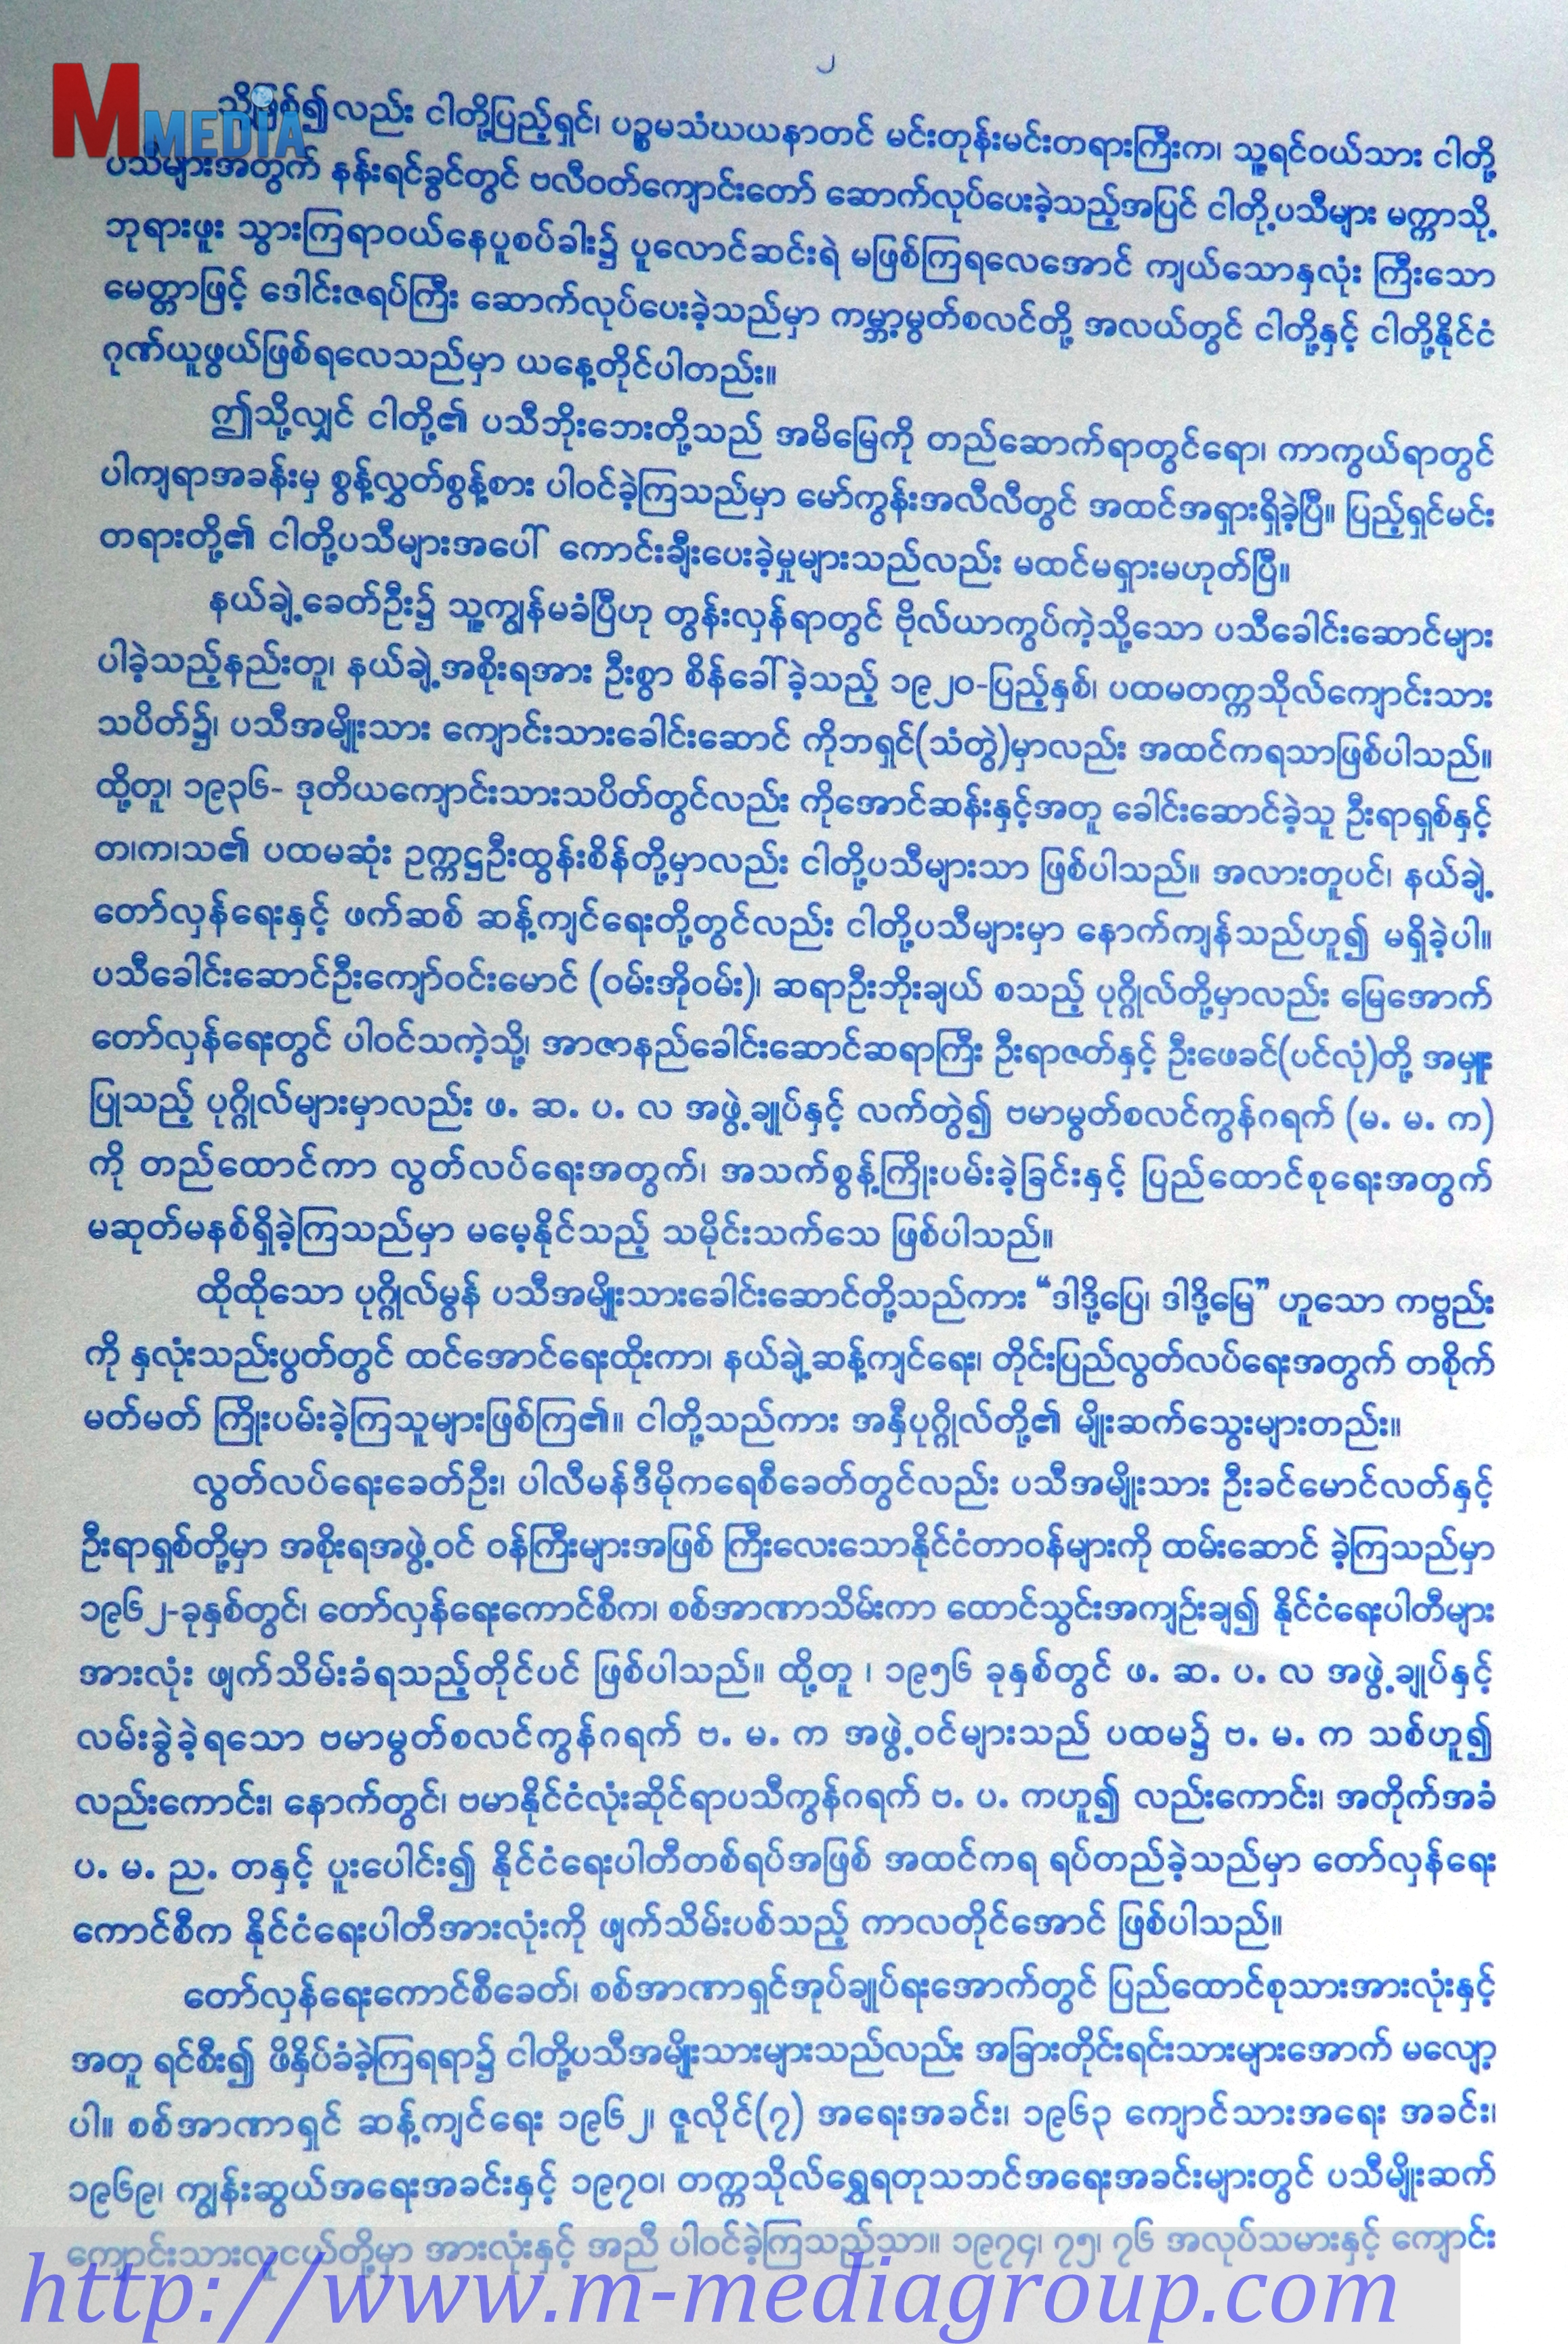 ၂
M MEDIA
သို့ဖြစ်၍လည်း ငါတို့ပြည့်ရှင်၊ ပဉ္စမသံဃယနာတင် မင်းတုန်းမင်းတရားကြီးက၊ သူ့ရင်ဝယ်သား ငါတို့
ပသီများအတွက် နန်းရင်ခွင်တွင် ဗလီဝတ်ကျောင်းတော် ဆောက်လုပ်ပေးခဲ့သည့်အပြင် ငါတို့ပသီများ မက္ကာသို့
ဘုရားဖူး သွားကြရာဝယ်နေပူစပ်ခါး၌ ပူလောင်ဆင်းရဲ မဖြစ်ကြရလေအောင် ကျယ်သောနှလုံး ကြီးသော
မေတ္တာဖြင့် ဒေါင်းဇရပ်ကြီး ဆောက်လုပ်ပေးခဲ့သည်မှာ ကမ္ဘာ့မွတ်စလင်တို့ အလယ်တွင် ငါတို့နှင့် ငါတို့နိုင်ငံ
ဂုဏ်ယူဖွယ်ဖြစ်ရလေသည်မှာ ယနေ့တိုင်ပါတည်း။
ဤသို့လျှင် ငါတို့၏ ပသီဘိုးဘေးတို့သည် အမိမြေကို တည်ဆောက်ရာတွင်ရော၊ ကာကွယ်ရာတွင်
ပါကျရာအခန်းမှ စွန့်လွှတ်စွန့်စား ပါဝင်ခဲ့ကြသည်မှာ မော်ကွန်းအလီလီတွင် အထင်အရှားရှိခဲ့ပြီ။ ပြည့်ရှင်မင်း
တရားတို့၏ ငါတို့ပသီများအပေါ် ကောင်းချီးပေးခဲ့မှုများသည်လည်း မထင်မရှားမဟုတ်ပြီ။
နယ်ချဲ့ခေတ်ဦး၌ သူ့ကျွန်မခံပြီဟု တွန်းလှန်ရာတွင် ဗိုလ်ယာကွပ်ကဲ့သို့သော ပသီခေါင်းဆောင်များ
ပါခဲ့သည့်နည်းတူ၊ နယ်ချဲ့အစိုးရအား ဦးစွာ စိန်ခေါ်ခဲ့သည့် ၁၉၂၀-ပြည့်နှစ်၊ ပထမတက္ကသိုလ်ကျောင်းသား
သပိတ်၌၊ ပသီအမျိုးသား ကျောင်းသားခေါင်းဆောင် ကိုဘရှင်(သံတွဲ)မှာလည်း အထင်ကရသာဖြစ်ပါသည်။
ထို့တူ၊ ၁၉၃၆- ဒုတိယကျောင်းသားသပိတ်တွင်လည်း ကိုအောင်ဆန်းနှင့်အတူ ခေါင်းဆောင်ခဲ့သူ ဦးရာရှစ်နှင့်
တ၊က၊သ၏ ပထမဆုံး ဥက္ကဋ္ဌဦးထွန်းစိန်တို့မှာလည်း ငါတို့ပသီများသာ ဖြစ်ပါသည်။ အလားတူပင်၊ နယ်ချဲ့
တော်လှန်ရေးနှင့် ဖက်ဆစ် ဆန့်ကျင်ရေးတို့တွင်လည်း ငါတို့ပသီများမှာ နောက်ကျန်သည်ဟူ၍ မရှိခဲ့ပါ။
ပသီခေါင်းဆောင်ဦးကျော်ဝင်းမောင် (ဝမ်းအိုဝမ်း)၊ ဆရာဦးဘိုးချယ် စသည့် ပုဂ္ဂိုလ်တို့မှာလည်း မြေအောက်
တော်လှန်ရေးတွင် ပါဝင်သကဲ့သို့၊ အာဇာနည်ခေါင်းဆောင်ဆရာကြီး ဦးရာဇတ်နှင့် ဦးဖေခင်(ပင်လုံ)တို့ အမှူး
ပြုသည့် ပုဂ္ဂိုလ်များမှာလည်း ဖ. ဆ. ပ. လ အဖွဲ့ချုပ်နှင့် လက်တွဲ၍ ဗမာမွတ်စလင်ကွန်ဂရက် (မ. မ. က)
ကို တည်ထောင်ကာ လွတ်လပ်ရေးအတွက်၊ အသက်စွန့်ကြိုးပမ်းခဲ့ခြင်းနှင့် ပြည်ထောင်စုရေးအတွက်
မဆုတ်မနစ်ရှိခဲ့ကြသည်မှာ မမေ့နိုင်သည့် သမိုင်းသက်သေ ဖြစ်ပါသည်။
ထိုထိုသော ပုဂ္ဂိုလ်မွန် ပသီအမျိုးသားခေါင်းဆောင်တို့သည်ကား “ဒါဒို့ပြေ၊ ဒါဒို့မြေ” ဟူသော ကဗ္ဗည်း
ကို နှလုံးသည်းပွတ်တွင် ထင်အောင်ရေးထိုးကာ၊ နယ်ချဲ့ဆန့်ကျင်ရေး၊ တိုင်းပြည်လွတ်လပ်ရေးအတွက် တစိုက်
မတ်မတ် ကြိုးပမ်းခဲ့ကြသူများဖြစ်ကြ၏။ ငါတို့သည်ကား အနှီပုဂ္ဂိုလ်တို့၏ မျိုးဆက်သွေးများတည်း။
လွတ်လပ်ရေးခေတ်ဦး၊ ပါလီမန်ဒီမိုကရေစီခေတ်တွင်လည်း ပသီအမျိုးသား ဦးခင်မောင်လတ်နှင့်
ဦးရာရှစ်တို့မှာ အစိုးရအဖွဲ့ဝင် ဝန်ကြီးများအဖြစ် ကြီးလေးသောနိုင်ငံတာဝန်များကို ထမ်းဆောင် ခဲ့ကြသည်မှာ
၁၉၆၂-ခုနှစ်တွင်၊ တော်လှန်ရေးကောင်စီက၊ စစ်အာဏာသိမ်းကာ ထောင်သွင်းအကျဉ်းချ၍ နိုင်ငံရေးပါတီများ
အားလုံး ဖျက်သိမ်းခံရသည့်တိုင်ပင် ဖြစ်ပါသည်။ ထို့တူ ၊ ၁၉၅၆ ခုနှစ်တွင် ဖ. ဆ. ပ. လ အဖွဲ့ချုပ်နှင့်
လမ်းခွဲခဲ့ရသော ဗမာမွတ်စလင်ကွန်ဂရက် ဗ. မ. က အဖွဲ့ဝင်များသည် ပထမ၌ ဗ. မ. က သစ်ဟူ၍
လည်းကောင်း၊ နောက်တွင်၊ ဗမာနိုင်ငံလုံးဆိုင်ရာပသီကွန်ဂရက် ဗ. ပ. ကဟူ၍ လည်းကောင်း၊ အတိုက်အခံ
ပ. မ. ည. တနှင့် ပူးပေါင်း၍ နိုင်ငံရေးပါတီတစ်ရပ်အဖြစ် အထင်ကရ ရပ်တည်ခဲ့သည်မှာ တော်လှန်ရေး
ကောင်စီက နိုင်ငံရေးပါတီအားလုံးကို ဖျက်သိမ်းပစ်သည့် ကာလတိုင်အောင် ဖြစ်ပါသည်။
တော်လှန်ရေးကောင်စီခေတ်၊ စစ်အာဏာရှင်အုပ်ချုပ်ရးအောက်တွင် ပြည်ထောင်စုသားအားလုံးနှင့်
အတူ ရင်စီး၍ ဖိနှိပ်ခံခဲ့ကြရရာ၌ ငါတို့ပသီအမျိုးသားများသည်လည်း အခြားတိုင်းရင်းသားများအောက် မလျော့
ပါ။ စစ်အာဏာရှင် ဆန့်ကျင်ရေး ၁၉၆၂၊ ဇူလိုင်(၇) အရေးအခင်း၊ ၁၉၆၃ ကျောင်သားအရေး အခင်း၊
၁၉၆၉၊ ကျွန်းဆွယ်အရေးအခင်းနှင့် ၁၉၇၀၊ တက္ကသိုလ်ရွှေရတုသဘင်အရေးအခင်းများတွင် ပသီမျိုးဆက်
ကျောင်းသားလူငယ်တို့မှာ အားလုံးနှင့် အညီ ပါဝင်ခဲ့ကြသည်သာ။ ၁၉၇၄၊ ၇၅၊ ၇၆ အလုပ်သမားနှင့် ကျောင်း
http://www.m-mediagroup.com